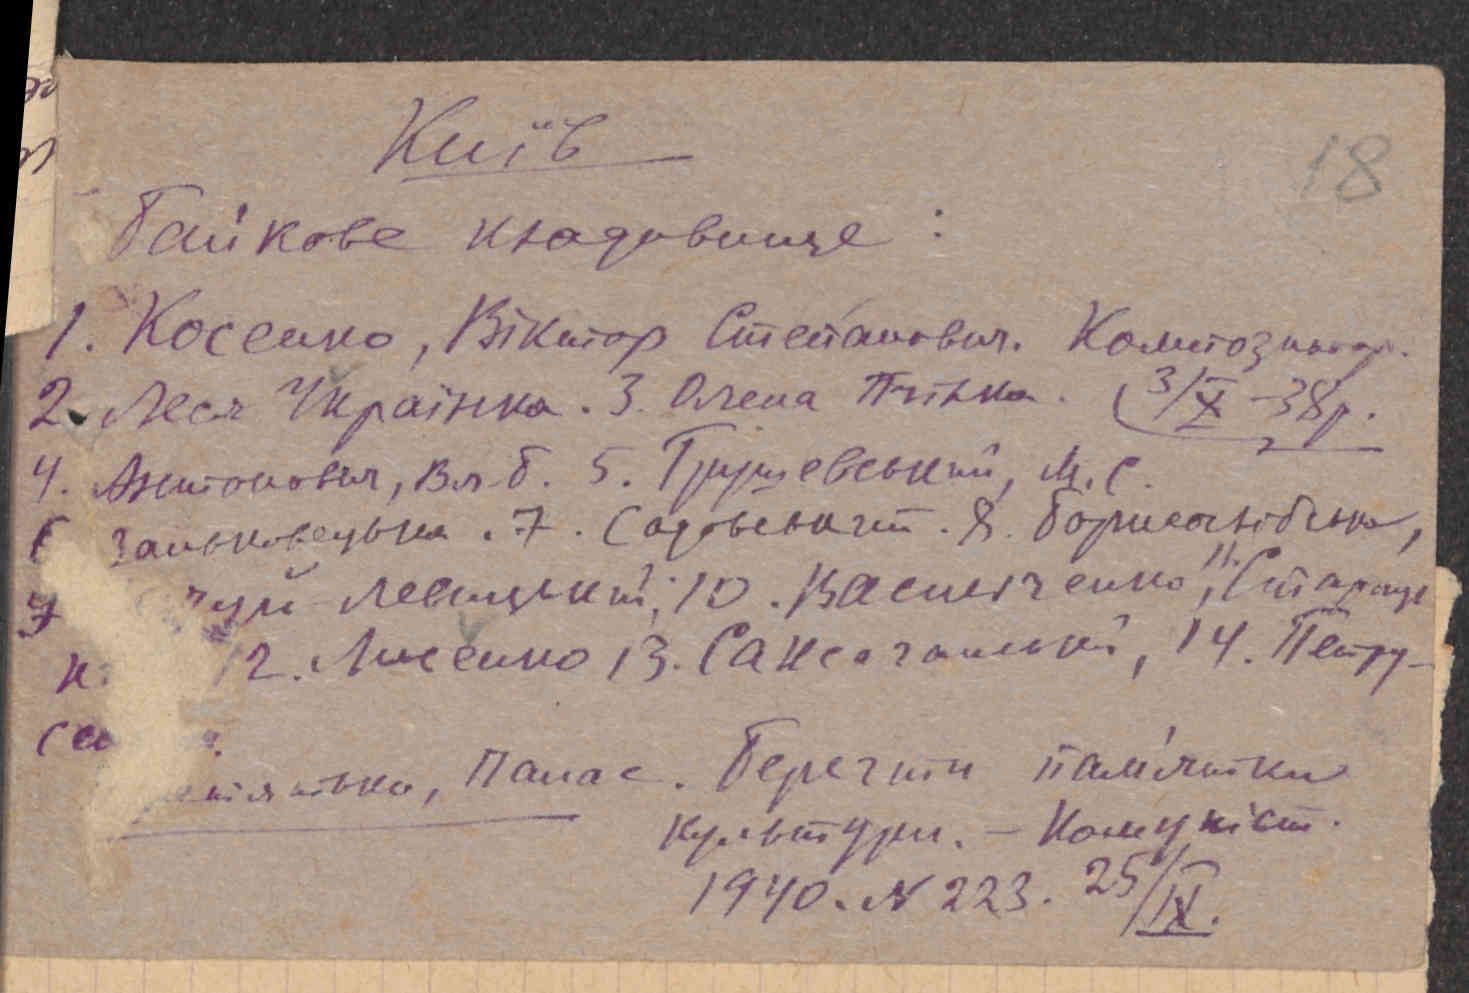 Київ
18
Байкове кладовище:
1. Косенко, Віктор Степанович. Композитор.
2. Леся Українка. 3. Олена Пчілка. (3/X-38р.
4. Антонович, Вл. Б. 5. Грушевський, М. С.
6 Заньковецька. 7. Садовський. 8. Бориславська,
9 Левицький; 10. Васильченко, 11. Стариць
к 12. Лисенко 13. Саксаганський, 14. Петру-
се
Панас. Берегти пам'ятки
культури. – Комуніст.
1940. N 223. 25/IX.